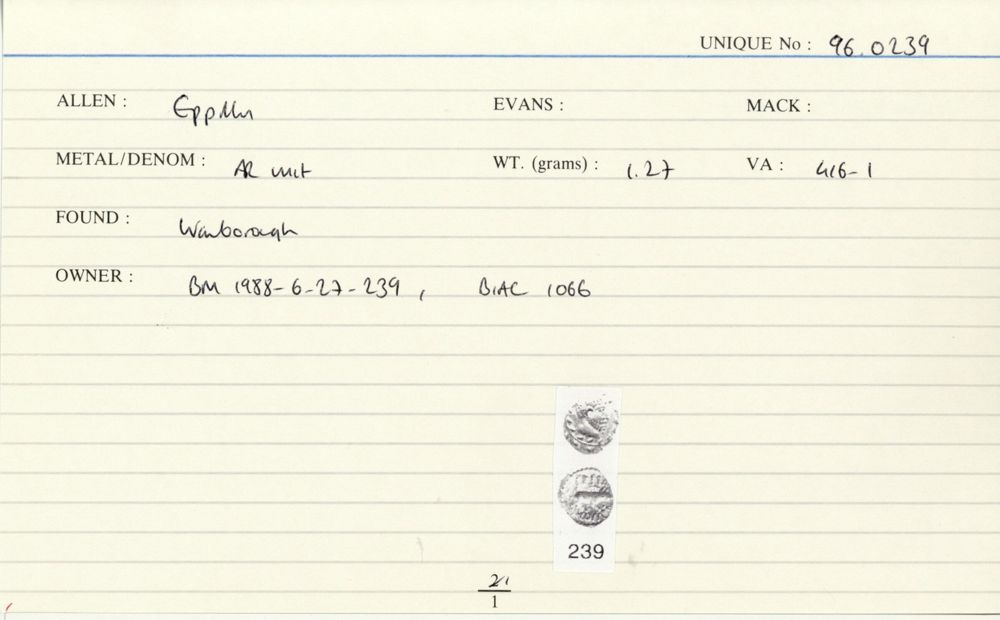 UNIQUE No : 96.0239
ALLEN : Eppillus EVANS : MACK :
METAL/DENOM : AR unit WT. (grams) : 1.27 VA : 416-1
FOUND : Wanborough
OWNER : BM 1988-6-27-239, BIAC 1066
239
21
1